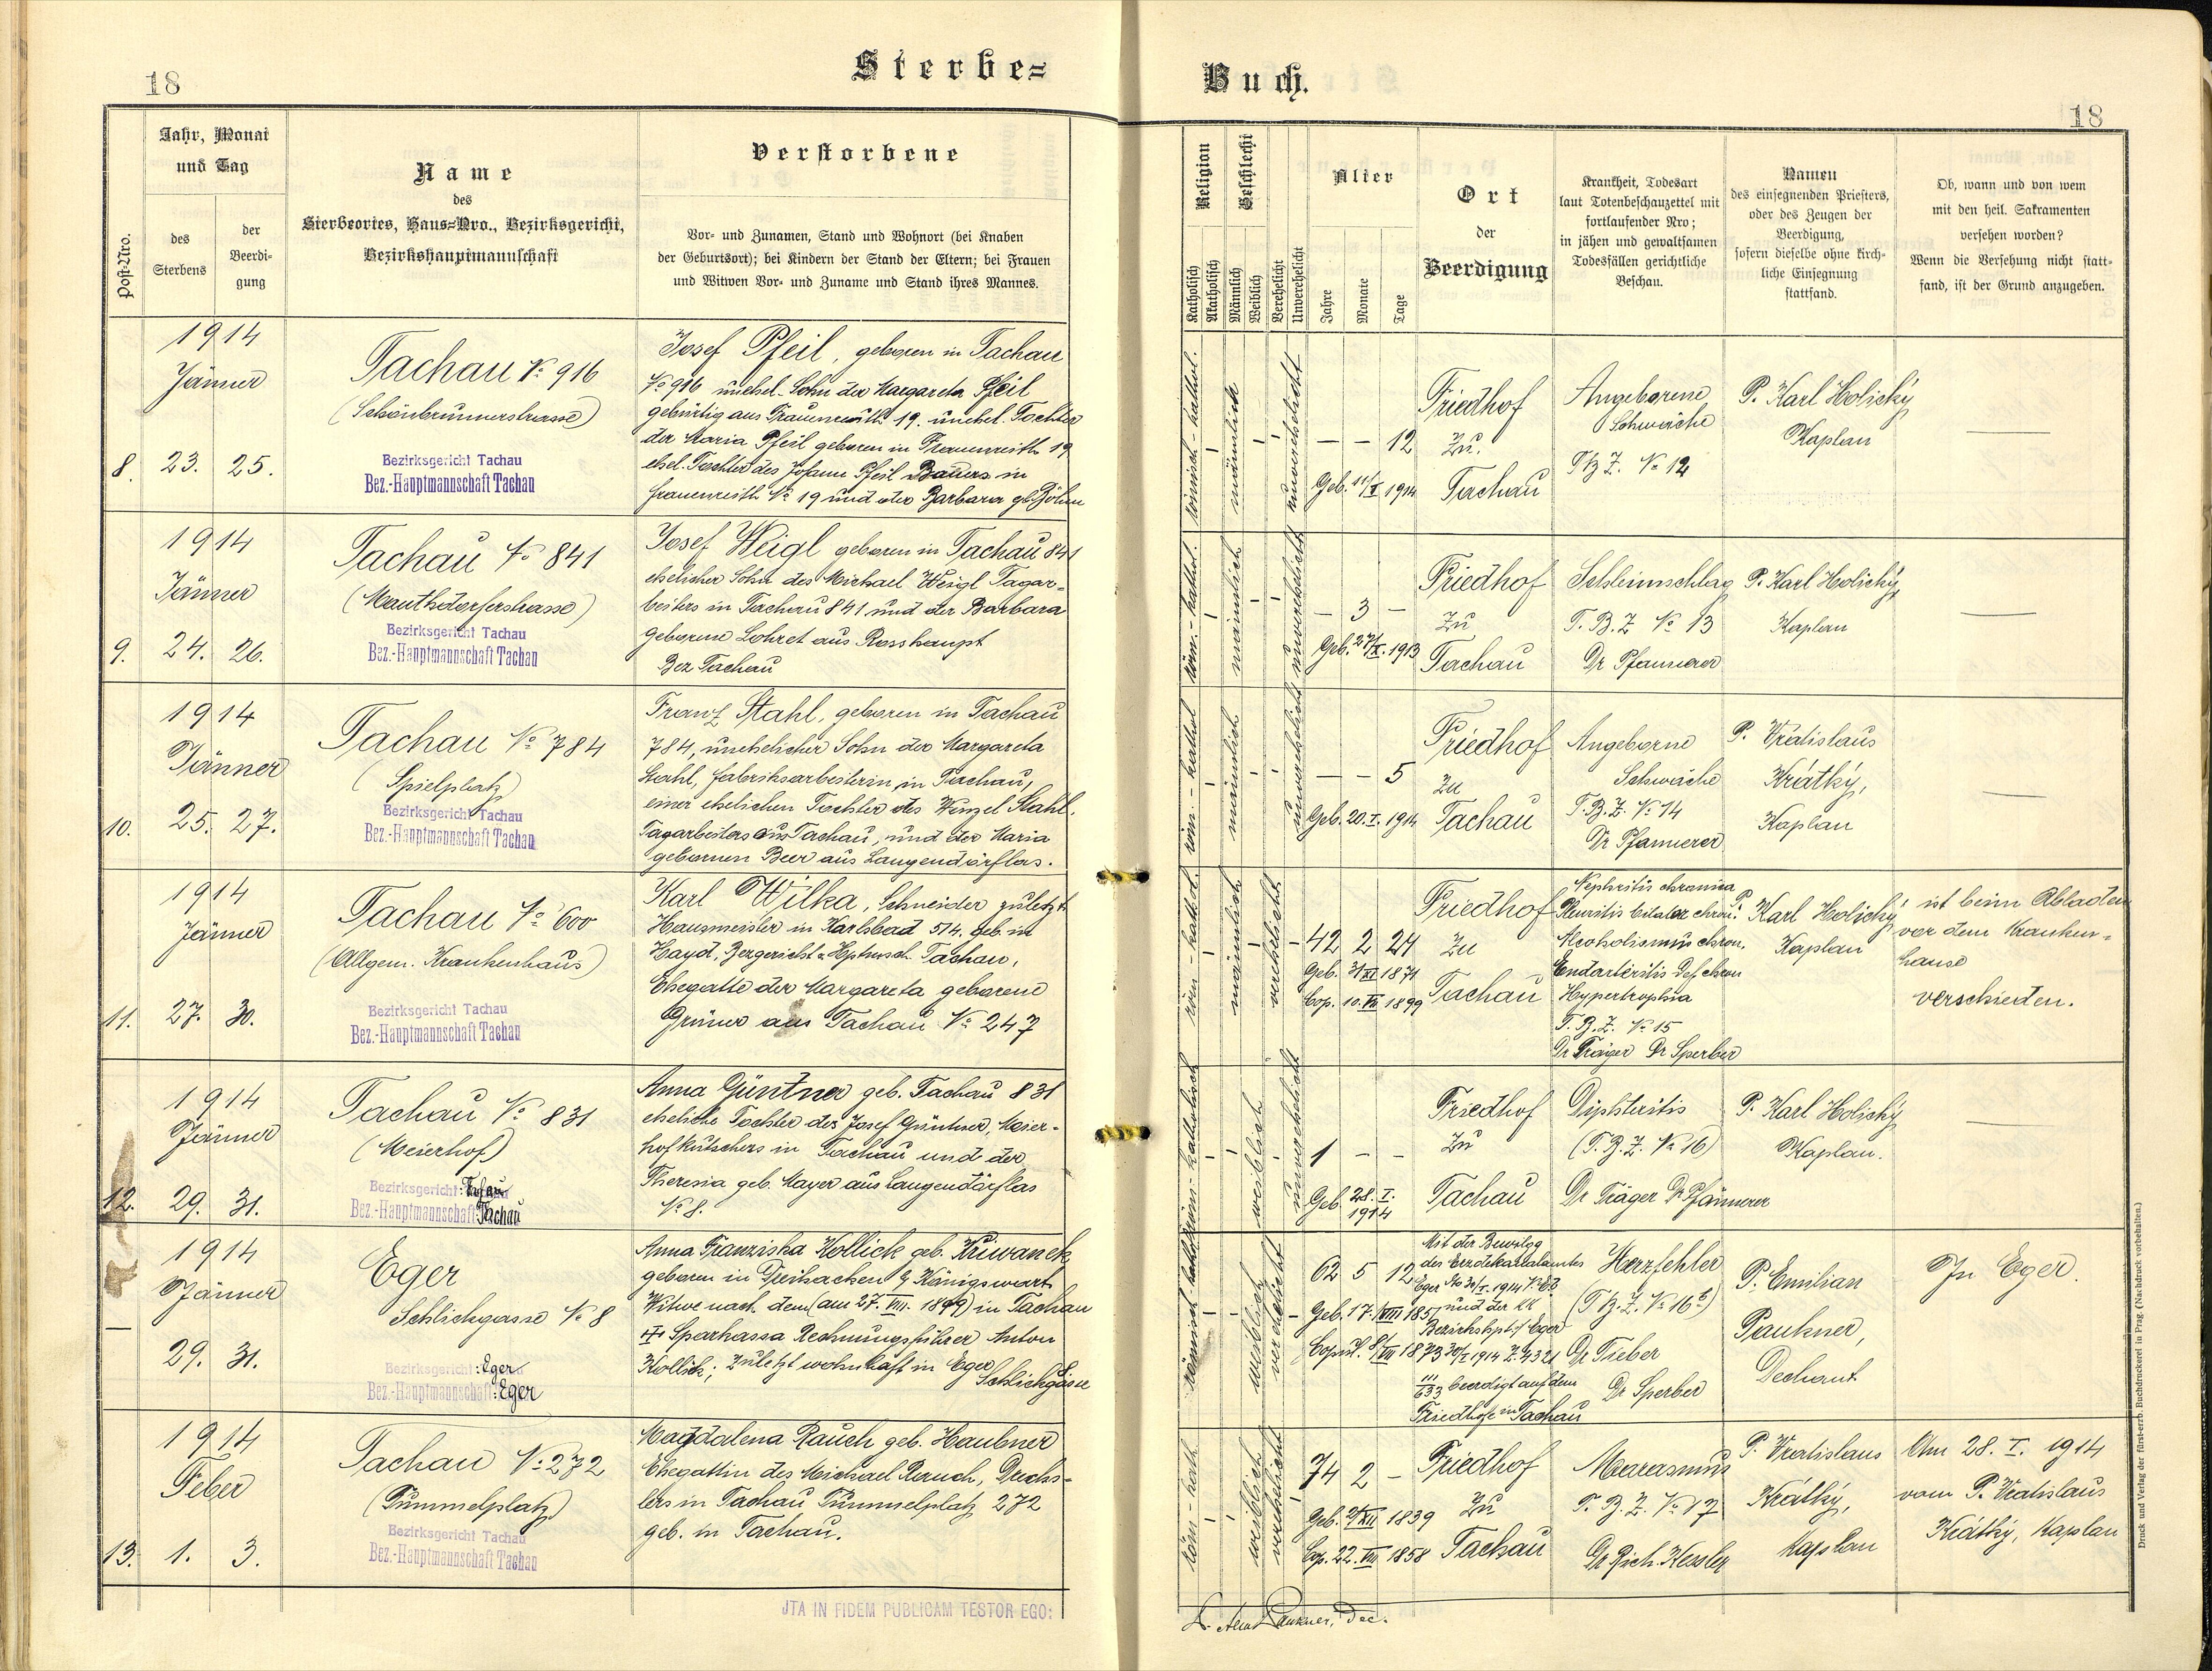 18
Sterbe=
Post-Nro.
Jahr, Monat
und Tag
des
Sterbens
der
Beerdi-
gung
Name
des
Sterbeortes, Haus=Nro., Bezirksgericht,
Bezirkshauptmannschaft
Verstorbene
Vor- und Zunamen, Stand und Wohnort (bei Knaben
der Geburtsort); bei Kindern der Stand der Eltern; bei Frauen
und Witwen Vor- und Zuname und Stand ihres Mannes.
8.
1914
Jänner
23. 25.
Tachau № 916
(Schönbrunnerstrasse)
Bezirksgericht Tachau
Bez.-Hauptmannschaft Tachau
Josef Pfeil, geboren in Tachau
№ 916 unehel. Sohn der Margareta Pfeil
gebürtig aus Frauenreith 19. unehel. Tochter
der Maria Pfeil geboren in Frauenreith 19
ehel. Tochter des Johann Pfeil Bauers in
Frauenreith № 19 und der Barbara gb. Böhm
9.
1914
Jänner
24. 26.
Tachau № 841
(Mauthdorferstrasse)
Bezirksgericht Tachau
Bez.-Hauptmannschaft Tachau
Josef Weigl geboren in Tachau 841
ehelicher Sohn des Michael Weigl Tagar-
beiters in Tachau 841 und der Barbara
geborene Lohret aus Rosshaupt
Bez Tachau
10.
1914
Jänner
25. 27.
Tachau № 784
(Spielplatz)
Bezirksgericht Tachau
Bez.-Hauptmannschaft Tachau
Franz Stahl, geboren in Tachau
784, unehelicher Sohn der Margareta
Stahl, Fabriksarbeiterin in Tachau,
einer ehelichen Tochter des Wenzel Stahl,
Tagarbeiters aus Tachau, und der Maria
gebornen Beer aus Langendörflas.
11.
1914
Jänner
27. 30.
Tachau № 600
(Allgem. Krankenhaus)
Bezirksgericht Tachau
Bez.-Hauptmannschaft Tachau
Karl Wilka, Schneider zuletzt
Hausmeister in Karlsbad 514. geb. in
Hayd, Bezgericht u Hptmsch. Tachau,
Ehegatte der Margareta geborene
Grüner aus Tachau № 247
12.
1914
Jänner
29. 31.
Tachau № 831
(Meierhof)
Bezirksgericht: Tachau
Bez.-Hauptmannschaft: Tachau
Anna Güntner geb. Tachau 831
eheliche Tochter des Josef Güntner, Meier-
hofkutschers in Tachau und der
Theresia geb. Mayer aus Langendörflas
№ 8.
—
1914
Jänner
29. 31.
Eger
Schlickgasse № 8
Bezirksgericht: Eger
Bez.-Hauptmannschaft: Eger
Anna Franziska Kollick geb. Kriwanek
geboren in Dreihacken b Königswart
Witwe nach dem (am 27. VIII. 1899) in Tachau
Sparkassa Rechnungsführer Anton
Kollick; zuletzt wohnhaft in Eger
Schlickgasse 8
13.
1914
Feber
1. 3.
Tachau № 272
(Tummelplatz)
Bezirksgericht Tachau
Bez.-Hauptmannschaft Tachau
Magdalena Rauch geb. Haubner
Ehegattin des Michael Rauch, Drechs-
lers in Tachau Tummelplatz 272
geb. in Tachau.
JTA IN FIDEM PUBLICAM TESTOR EGO:
Buch.
18
Religion
Katholisch
Akatholisch
Geschlecht
Männlich
Weiblich
Verehelicht
Unverehelicht
Alter
Jahre
Monate
Tage
Ort
der
Beerdigung
Krankheit, Todesart
laut Totenbeschauzettel mit
fortlaufender Nro;
in jähen und gewaltsamen
Todesfällen gerichtliche
Beschau.
Namen
des einsegnenden Priesters,
oder des Zeugen der
Beerdigung,
sofern dieselbe ohne kirch-
liche Einsegnung
stattfand.
Ob, wann und von wem
mit den heil. Sakramenten
versehen worden?
Wenn die Versehung nicht statt-
fand, ist der Grund anzugeben.
römisch - kathol.
männlich
unverehelicht
— — 12
Geb. 11/I 1914
Friedhof
zu
Tachau
Angeborene
Schwäche
TBZ. № 12
P. Karl Holický
Kaplan
—
röm. - kathol.
männlich
unverehelicht
— 3 —
Geb. 27/X. 1913
Friedhof
zu
Tachau
Schleimschlag
T.B.Z № 13
Dr Pfannerer
P. Karl Holický,
Kaplan
—
röm. - kathol
männlich
unverehelicht
— — 5
Geb. 20. I. 1914
Friedhof
zu
Tachau
Angeborne
Schwäche
T.B.Z. № 14
Dr Pfannerer
P. Vratislaus
Krátký,
Kaplan
—
röm - kathol.
männlich
verehelicht
42 2 24
Geb. 3/XI 1871
Cop. 10. VII 1899
Friedhof
zu
Tachau
Nephritis chronica
Pleuritis bilater chron.
Alcoholismus chron.
Endarteriitis def chron
Hypertrophia
T.B.Z. № 15
Dr Träger Dr Sperber
P. Karl Holický
Kaplan
ist beim Abladen
vor dem Kranken-
hause
verschieden.
röm. - katholisch
weiblich
unverehelicht
1 — —
Geb. 28. I.
1914
Friedhof
zu
Tachau
Diphteritis
(T.B.Z. № 16)
Dr Träger Dr Pfannerer
P. Karl Holický
Kaplan.
—
römisch kathol.
weiblich
verehelicht
62 5 12
Geb. 17. VIII 1851
Copul. 8/VII 1873
Mit der Bewillgg
des Erzdekanalamtes
Eger dto 30/I. 1914
und der kk
Bezirkshptsch Eger
30/I 1914 Z. 4321
beerdigt auf dem
Friedhofe in Tachau
Herzfehler
(TB.Z. № 16b)
Dr Tieber
Dr Sperber
P. Emilian
Paukner,
Dechant
In Eger.
röm - kath.
weiblich
verehelicht
74 2 —
Geb. 2/XII 1839
Cop. 22. VII 1858
Friedhof
zu
Tachau
Marasmus
T.B.Z. № 17
Dr Rich. Kessler
P. Vratislaus
Krátký,
Kaplan
Am 28. I. 1914
vom P. Vratislaus
Krátký, Kaplan
Paukner, Dec.
Druck und Verlag der fürst-erzb. Buchdruckerei in Prag. (Nachdruck vorbehalten.)